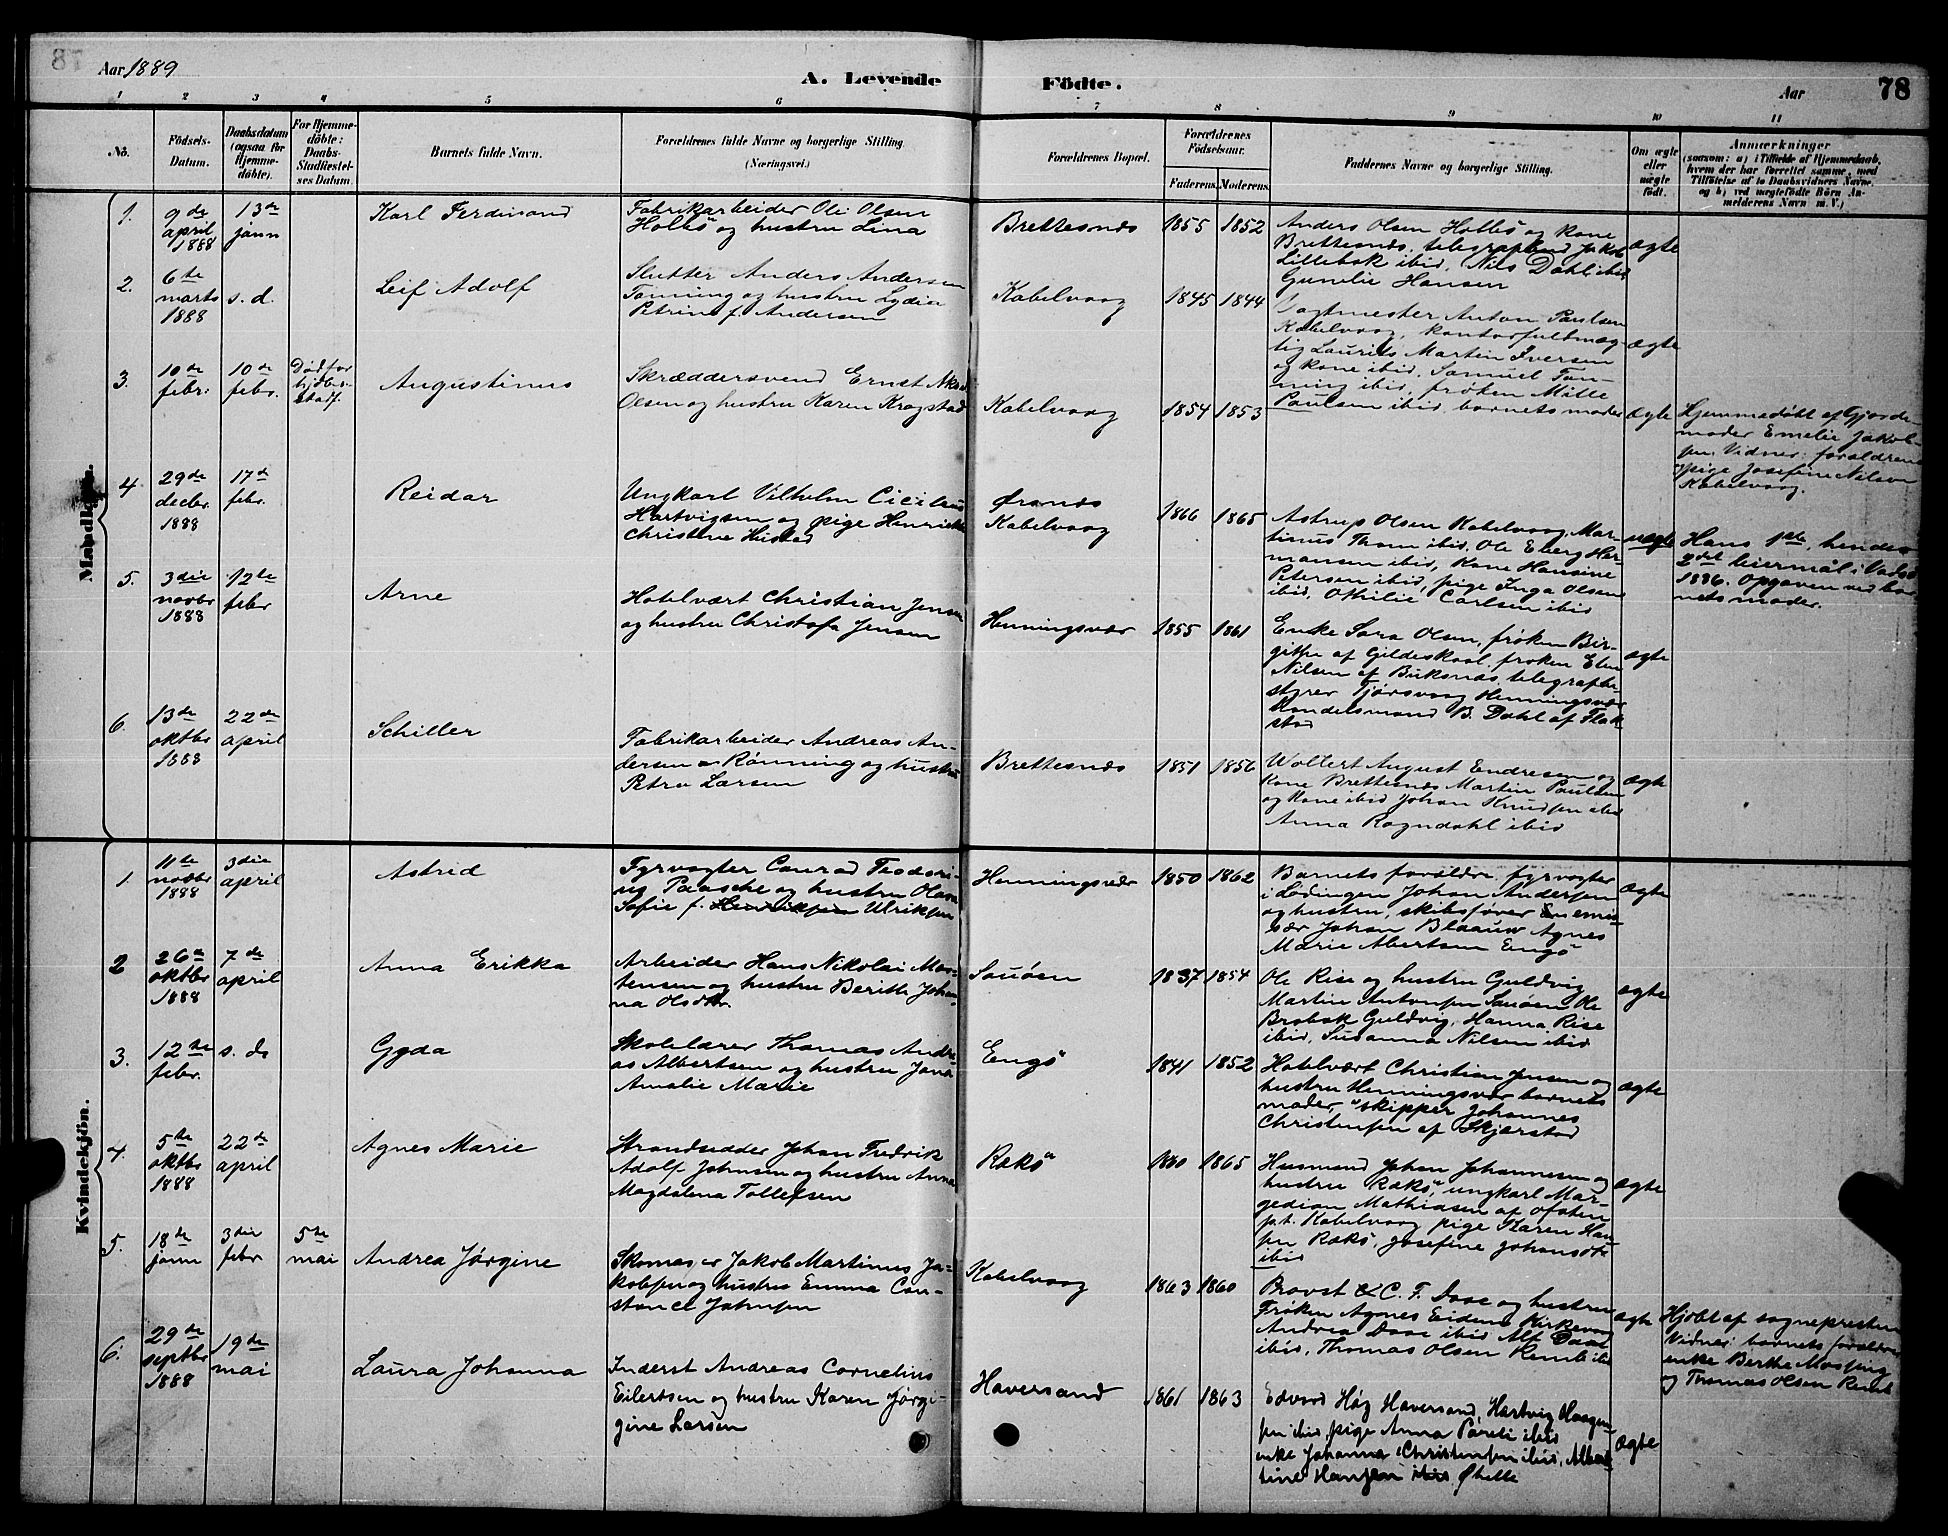 Aar 1889
A. Levende
Födte.
Aar
78
1 2 3 4 5 6 7 8 9 10 11
No.
Födsels-
Datum.
Daabsdatum
(ogsaa for
Hjemme-
döbte).
For Hjemme-
döbte:
Daabs-
Stadfæstel-
ses Datum.
Barnets fulde Navn.
Forældrenes fulde Navne og borgerlige Stilling.
(Næringsvei.)
Forældrenes Bopæl.
Forældrenes
Födselsaar.
Faderens. Moderens.
Faddernes Navne og borgerlige Stilling.
Om ægte
eller
uægte
födt.
Anmærkninger
(saasom: a) i Tilfælde af Hjemmedaab,
hvem der har forrettet samme, med
Tilföielse af to Daabsvidners Navne,
og b) ved uægtefödte Börn An-
melderens Navn m. V.)
Mandkjön.
1.
9de
april
1888
13de
janu
Karl Ferdinand
Fabrikarbeider Ole Olsen
Holbö og hustru Lina
Brettesnæs
1855 1852
Anders Olsen Holbö og kone
Brettesnæs, Jakob
Lillebak ibid, Nils Dahl ibid
Gunelie Hansen
ægte
2.
6te
marts
1888
s. d.
Leif Adolf
Slutter Anders Andersen
Tønning og hustru Lydia
Petrine f. Andersen
Kabelvaag
1845 1844
Vagtmester Anton Paulsen
Kabelvaag, kontorfuldmæg-
tig Laurits Martin Iversen
og kone ibid, Samuel Tøn-
ning ibid, frøken Mille
Paulsen ibid, barnets moder
ægte
3.
10de
febr.
10de
febr.
Død før
stadf.
Augustinus
Skræddersvend Ernst
Olsen og hustru Karen Kragstad
Kabelvaag
1854 1853
ægte
Hjemmedøbt af Gjorde-
moder Emelie Jakob-
sen. Vidner: forældrene
pige Josefine Nilsen
Kabelvaag.
4
29de
decbr.
1888
17de
febr.
Reidar
Ungkarl Vilhelm
Hartvigsen og pige Henrikke
Christine Hustad
Ørsnæs
Kabelvaag
1866 1865
Astrup Olsen Kabelvaag, Mar-
tinus Thom ibid, Ole Eberg Her-
mansen ibid, kone Hansine
Petersen ibid, pige Inga Olsen
ibid, Othilie Carlsen ibid
uægte
Hans 1ste, hendes
2det leiermål: Vadsø
1886. Opgaven ved bar-
nets moder.
5.
3die
novbr
1888
12te
febr
Arne
Hotelvært Christian Jensen
og hustru Christofa Jensen
Henningsvær
1855 1861
Enke Sara Olsen, frøken Bir-
githe af Gildeskaal, frøken
Nilsen af Buksnæs, telegrafbe-
styrer Henningsvær
Handelsmand B. Dahl af Flak-
stad
ægte
6.
13de
oktbr
1888
22de
april
Schiller
Fabrikarbeider Andreas An-
dersen Rønning og hustru
Petra Larsen
Brettesnæs
1851 1856
Woltert August Endresen og
kone Brettesnæs Martin Paulsen
og kone ibid Johan Knudsen ibid
Anna Rogndahl ibid
ægte
Kvindekjön.
1.
11te
novbr
1888
3die
april
Astrid
Fyrvogter Conrad Teodori-
us Paasche og hustru Olava
Sofie f. Henriksen Ulriksen
Henningsvær
1850 1862
Barnets forældre, fyrvogter
i Lødingen Johan Andersen
og hustru, skibsfører
Johan Blaauw Agnes
Marie Albertsen Engö
ægte
2
26de
oktbr
1888
7de
april
Anna Erikka
Arbeider Hans Nikolai Mor-
tensen og hustru Berith Johan-
na Olsdtr
Sauøen
1837 1854
Ole Rise og hustru Guldvig
Martin Antonsen Sauøen Ole
Brobak Guldvig, Hanna Rise
ibid, Susanna Nilsen ibid
ægte
3.
12te
febr.
s. d.
Gyda
Skolelærer Thomas Andre-
as Albertsen og hustru
Amalie Marie
Engö
1841 1852
Hotelvært Christian Jensen og
hustru Henningsvær barnets
moder, skipper Johannes
Christensen af Skjerstad
ægte
4.
5te
oktbr
1888
22de
april
Agnes Marie
Strandsidder Johan Fredrik
Adolf Johnsen og hustru Anna
Magdalena Tollefsen
Rækö
1860 1865
Husmand Johan Johannesen og
hustru Rækö, ungkarl Mar-
gedian Mathiasen af Ofoten
p.t. Kabelvaag pige Karen Han-
sen Rækö, Josefine Johansdtr
ibid
ægte
5.
18de
janu
3die
febr
5te
mai
Andrea Jørgine
Skomager Jakob Martinus Ja-
kobsen og hustru Emma Con-
stance Johnsen
Kabelvaag
1863 1860
Provst C. F. Daae og hustru
Frøken Agnes Eidem Kirkevaag
Andrea Daae ibid Alf Daae
ibid, Thomas Olsen Remb ibid
ægte
Hjdbt af sognepresten
Vidner: barnets forældre
enke Berthe
og Thomas Olsen Remb
6.
29de
septbr
1888
19de
mai
Laura Johanna
Inderst Andreas Cornelius
Eilertsen og hustru Karen Jørgi-
gine Larsen
Haversand
1861 1863
Edvard Høg Haversand, Hartvig Haagen-
sen ibid, pige Anna Pareli ibid
enke Johanna Christensen ibid, Alber-
tine Hansen ibid Ohelle
ægte